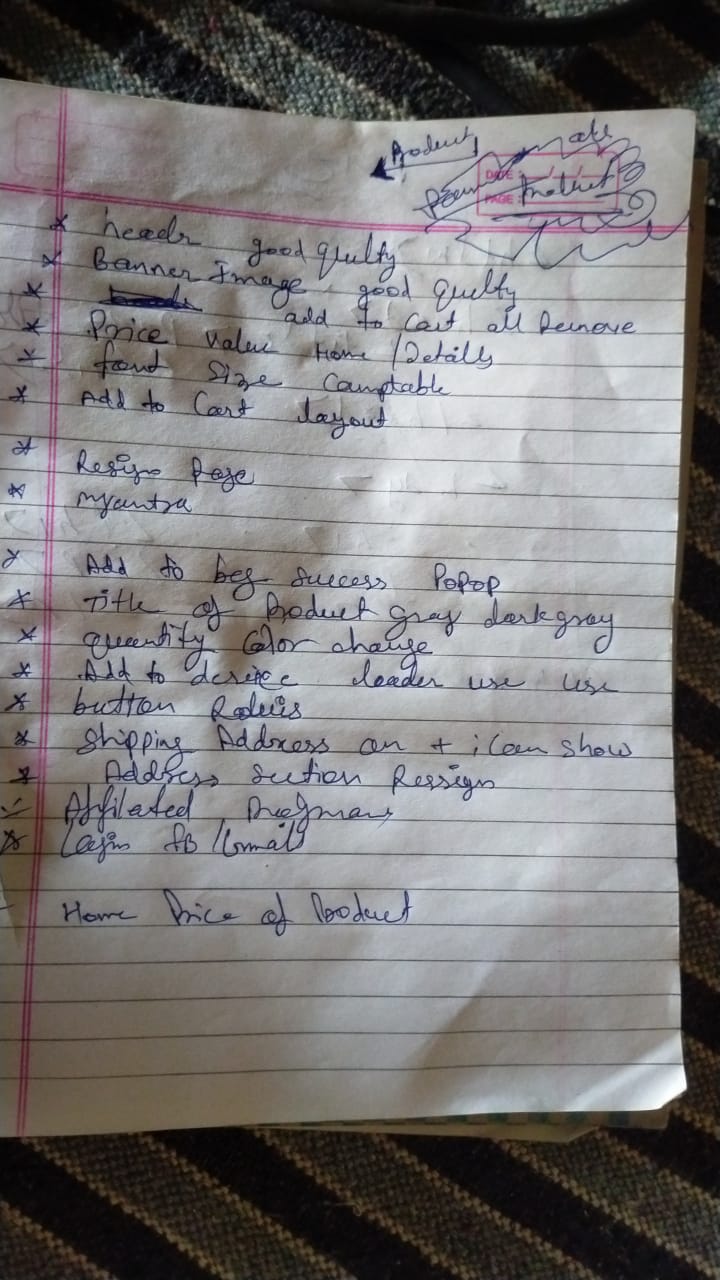 Product
DATE
PAGE
Product
* header good qulty
* Banner Image good qulty
* add to cart all Remove
* Price value Home / Details
* font size Comptable
* Add to Cart layout
* Resign Page
* myantra
* Add to beg success Popop
* Title of Product gray darkgray
* quantity Color change
* Add to loader use use
* button Radius
* Shipping Address on + icon show
* Address Section Ressign
Affilated
* Login fb / Gmail
- Home Price of Product